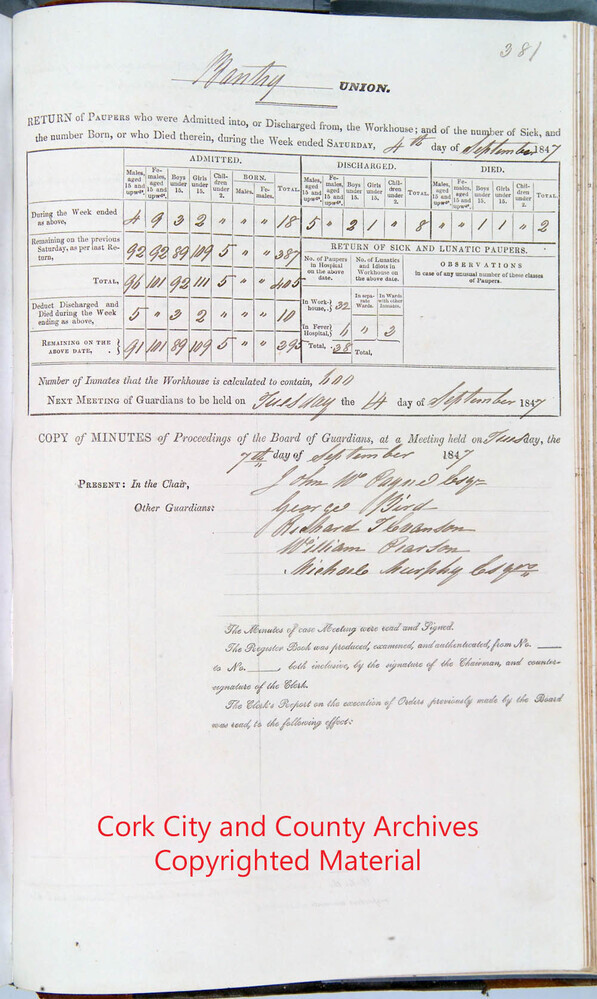 381
Bantry UNION.
RETURN of PAUPERS who were Admitted into, or Discharged from, the Workhouse; and of the number of Sick, and
the number Born, or who Died therein, during the Week ended SATURDAY, 4th day of September 1847
ADMITTED. DISCHARGED. DIED.
Males, aged 15 and upwds. Females, aged 15 and upwds. Boys under 15. Girls under 15. Children under 2. BORN. Males. Females. TOTAL. Males, aged 15 and upwds. Females, aged 15 and upwds. Boys under 15. Girls under 15. Children under 2. TOTAL. Males, aged 15 and upwds. Females, aged 15 and upwds. Boys under 15. Girls under 15. Children under 2. TOTAL.
During the Week ended as above, 4 9 3 2 " " " 18 5 " 2 1 " 8 " " 1 1 " 2
Remaining on the previous Saturday, as per last Return, 92 92 89 109 5 " " 387
TOTAL, 96 101 92 111 5 " " 405
Deduct Discharged and Died during the Week ending as above, 5 " 3 2 " " " 10
REMAINING ON THE ABOVE DATE, 91 101 89 109 5 " " 395
RETURN OF SICK AND LUNATIC PAUPERS.
No. of Paupers in Hospital on the above date. No. of Lunatics and Idiots in Workhouse on the above date. OBSERVATIONS in case of any unusual number of these classes of Paupers.
In separate Wards. In Wards with other Inmates.
In Workhouse, 32
In Fever Hospital, 6 " 3
Total, 38 Total,
Number of Inmates that the Workhouse is calculated to contain, 600
NEXT MEETING of Guardians to be held on Tuesday the 14 day of September 1847
COPY of MINUTES of Proceedings of the Board of Guardians, at a Meeting held on Tuesday, the
7th day of September 1847
PRESENT: In the Chair, John W Payne Esqr
Other Guardians: George Bird
Richard T Evanson
William Pearson
Michael Murphy Esqrs
The Minutes of case Meeting were read and Signed.
The Register Book was produced, examined, and authenticated, from No.
to No. , both inclusive, by the signature of the Chairman, and counter-
signature of the Clerk.
The Clerk's Report on the execution of Orders previously made by the Board
was read, to the following effect:
Cork City and County Archives
Copyrighted Material